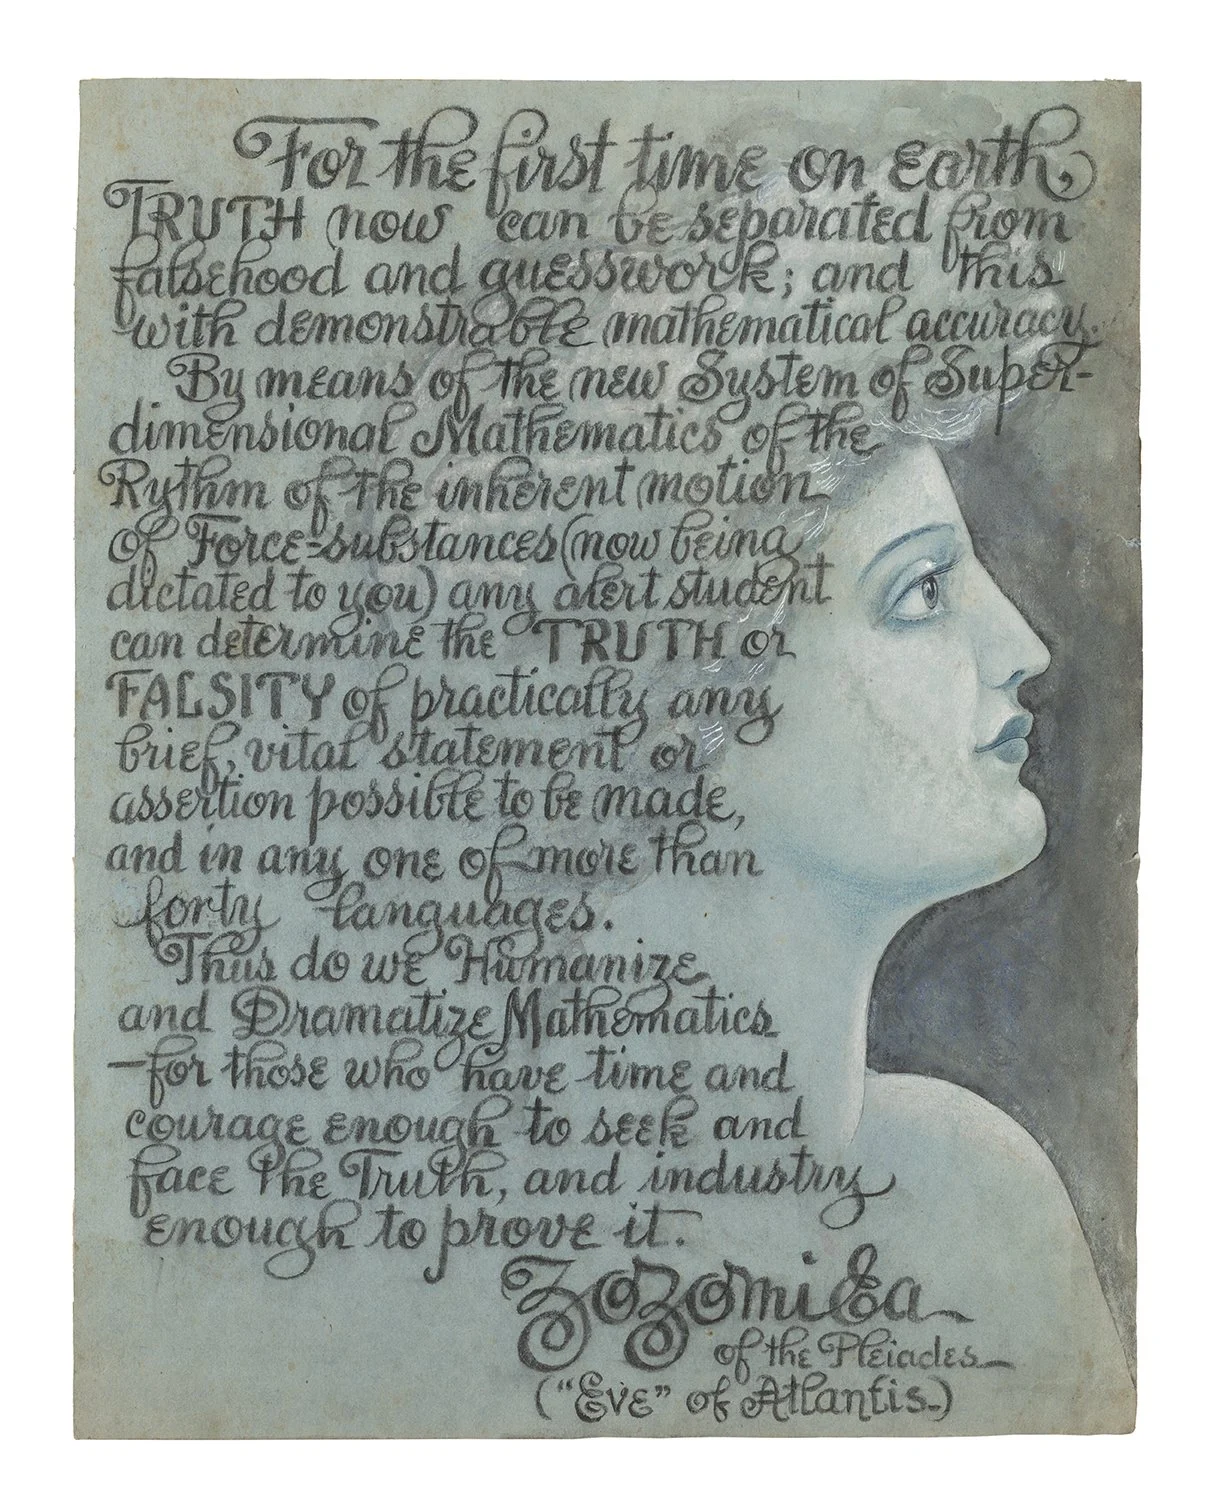 For the first time on earth,
TRUTH now can be separated from
falsehood and guesswork; and this
with demonstrable mathematical accuracy.
By means of the new System of Super-
dimensional Mathematics of the
Rythm of the inherent motion
of Force-substances (now being
dictated to you) any alert student
can determine the TRUTH or
FALSITY of practically any
brief, vital statement or
assertion possible to be made,
and in any one of more than
forty languages.
Thus do we Humanize
and Dramatize Mathematics
—for those who have time and
courage enough to seek and
face the Truth, and industry
enough to prove it.
Zozomi Ea
of the Pleiades
("Eve" of Atlantis.)